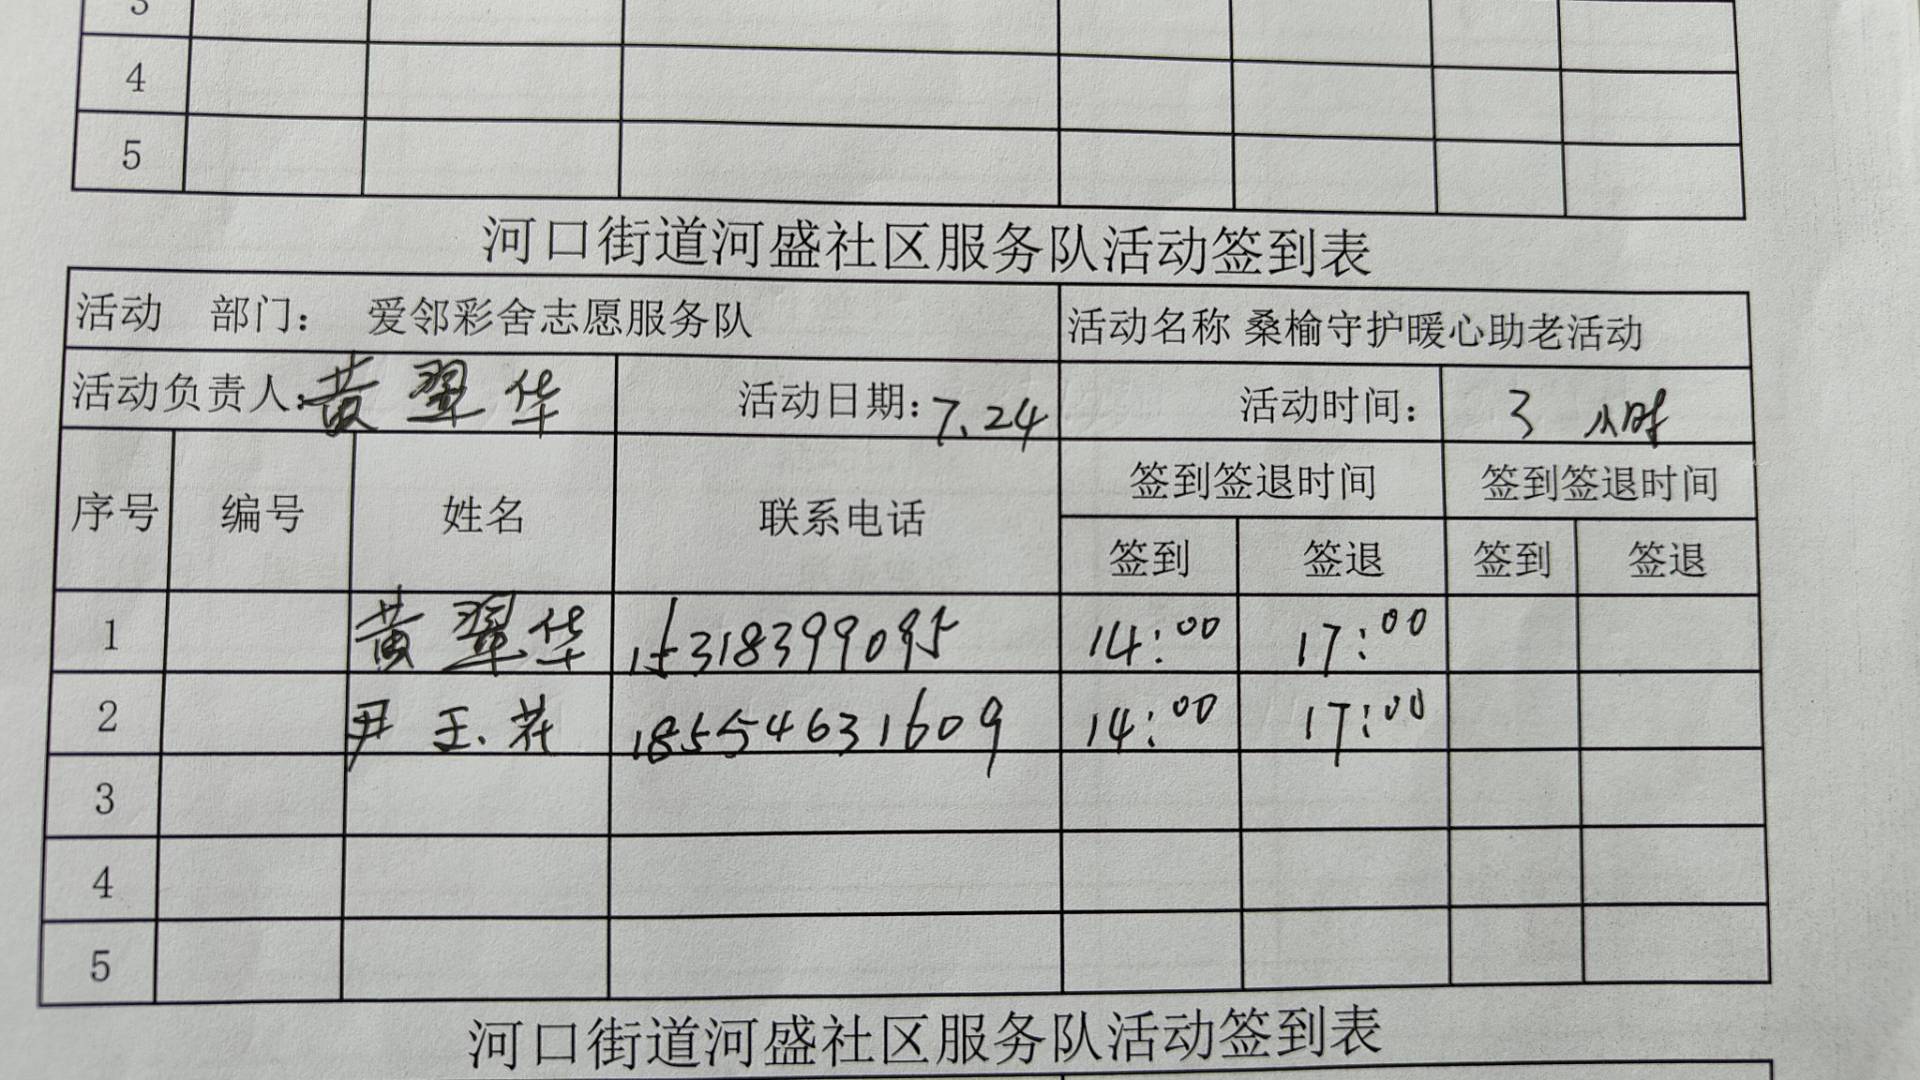 3
4
5
河口街道河盛社区服务队活动签到表
活动 部门： 爱邻彩舍志愿服务队 活动名称 桑榆守护暖心助老活动
活动负责人：黄翠华 活动日期：7.24 活动时间： 3 小时
序号 编号 姓名 联系电话 签到签退时间 签到签退时间
签到 签退 签到 签退
1 黄翠华 15318399095 14:00 17:00
2 尹玉花 18554631609 14:00 17:00
3
4
5
河口街道河盛社区服务队活动签到表